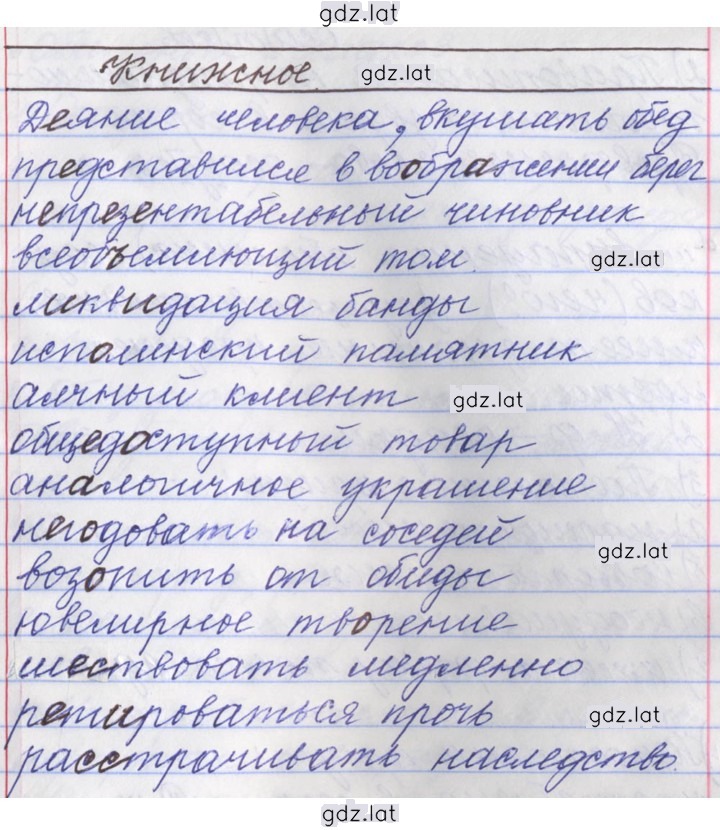 gdz.lat
Книжное. gdz.lat
Деяние человека, вкушать обед
представился в воображении берег
непрезентабельный чиновник
всеобъемлющий том. gdz.lat
ликвидация банды
исполинский памятник
алчный клиент gdz.lat
общедоступный товар
аналогичное украшение
негодовать на соседей
gdz.lat
возопить от обиды
ювелирное творение
шествовать медленно
ретироваться прочь gdz.lat
расстрачивать наследство.
gdz.lat